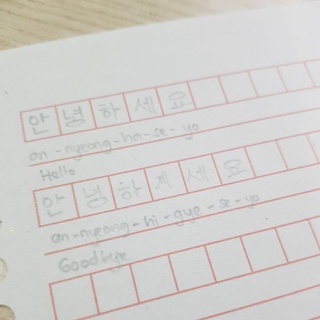 안녕하세요
an-nyeong-ha-se-yo
Hello
an-nyeong-hi-gye-se-yo
Goodbye